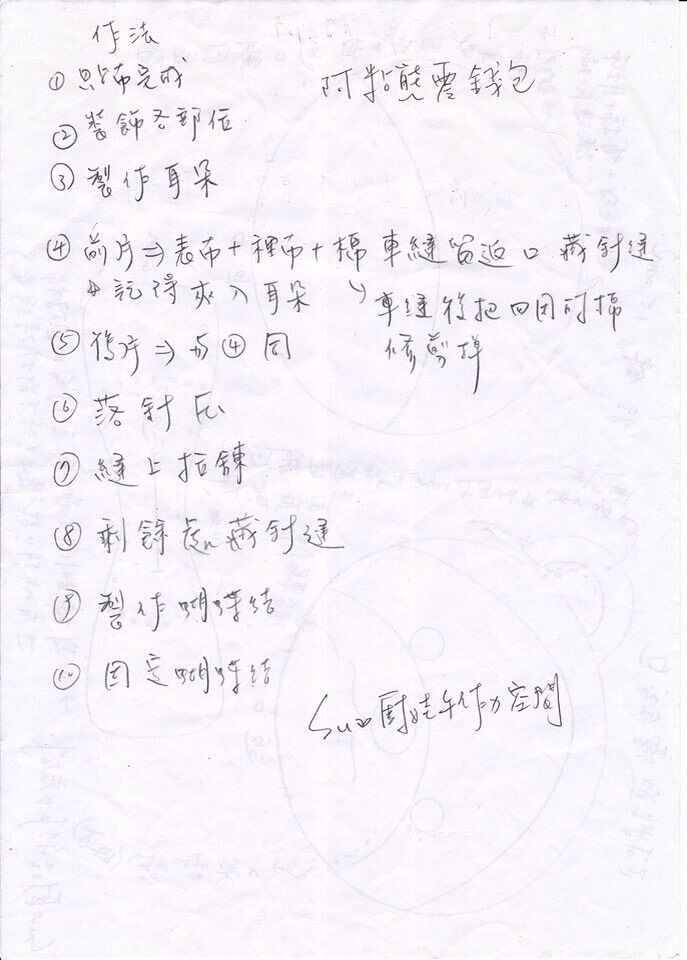 作法
阿粘熊零錢包
① 貼布完成
② 裝飾各部位
③ 製作耳朵
④ 前片⇒表布+裡布+棉 車縫留返口 藏針縫
記得夾入耳朵 車縫後把四周的棉
修剪掉
⑤ 後片⇒與④同
⑥ 落針压
⑦ 縫上拉鍊
⑧ 剩餘處藏針縫
⑨ 製作蝴蝶結
⑩ 固定蝴蝶結
手作力空間